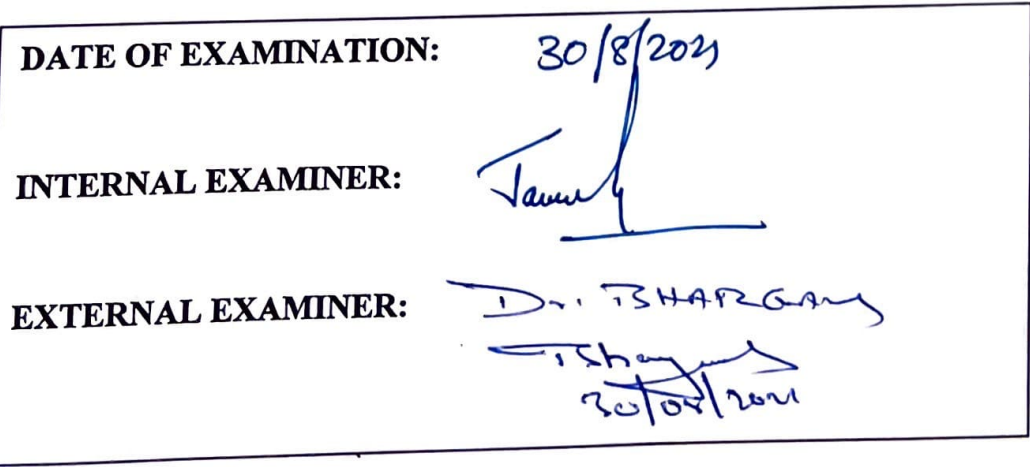 DATE OF EXAMINATION: 30/8/2021
INTERNAL EXAMINER:
EXTERNAL EXAMINER: Dr. BHARGAVA
30/08/2021